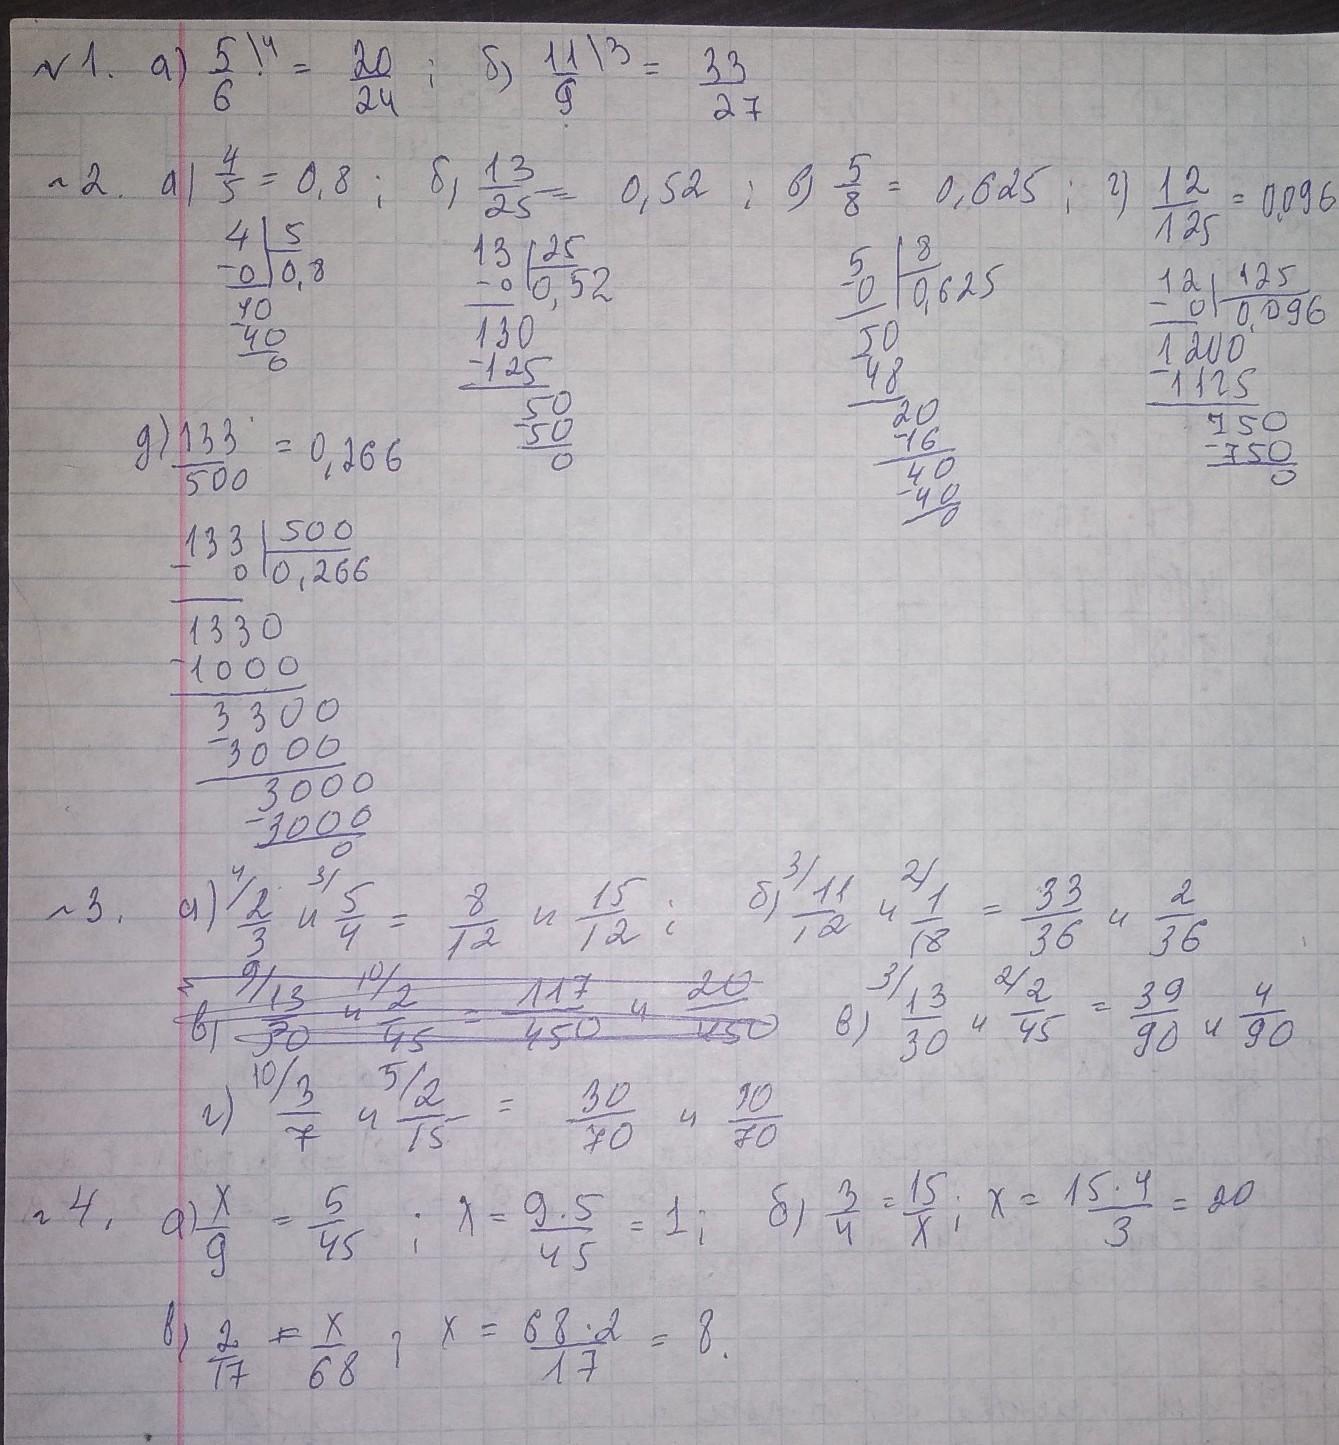 №1. а) 5/6 \4 = 20/24 ; б) 11/9 \3 = 33/27
№2. а) 4/5 = 0,8 ; б) 13/25 = 0,52 ; в) 5/8 = 0,625 ; г) 12/125 = 0,096
4 | 5
-0 | 0,8
40
-40
0
13 | 25
-0 | 0,52
130
-125
50
-50
0
5 | 8
-0 | 0,625
50
48
20
-16
40
-40
0
12 | 125
-0 | 0,096
1200
-1125
750
-750
0
д) 133/500 = 0,266
133 | 500
-0 | 0,266
1330
-1000
3300
-3000
3000
-3000
0
№3. а) 4/ 2/3 и 3/ 5/4 = 8/12 и 15/12 ; б) 3/ 11/12 и 2/ 1/18 = 33/36 и 2/36
в) 9/ 13/30 и 10/ 2/45 = 117/450 и 20/450 в) 3/ 13/30 и 2/ 2/45 = 39/90 и 4/90
г) 10/ 3/7 и 5/ 2/15 = 30/70 и 10/70
№4. а) x/9 = 5/45 ; x = 9·5/45 = 1; б) 3/4 = 15/x ; x = 15·4/3 = 20
в) 2/17 = x/68 ; x = 68·2/17 = 8.